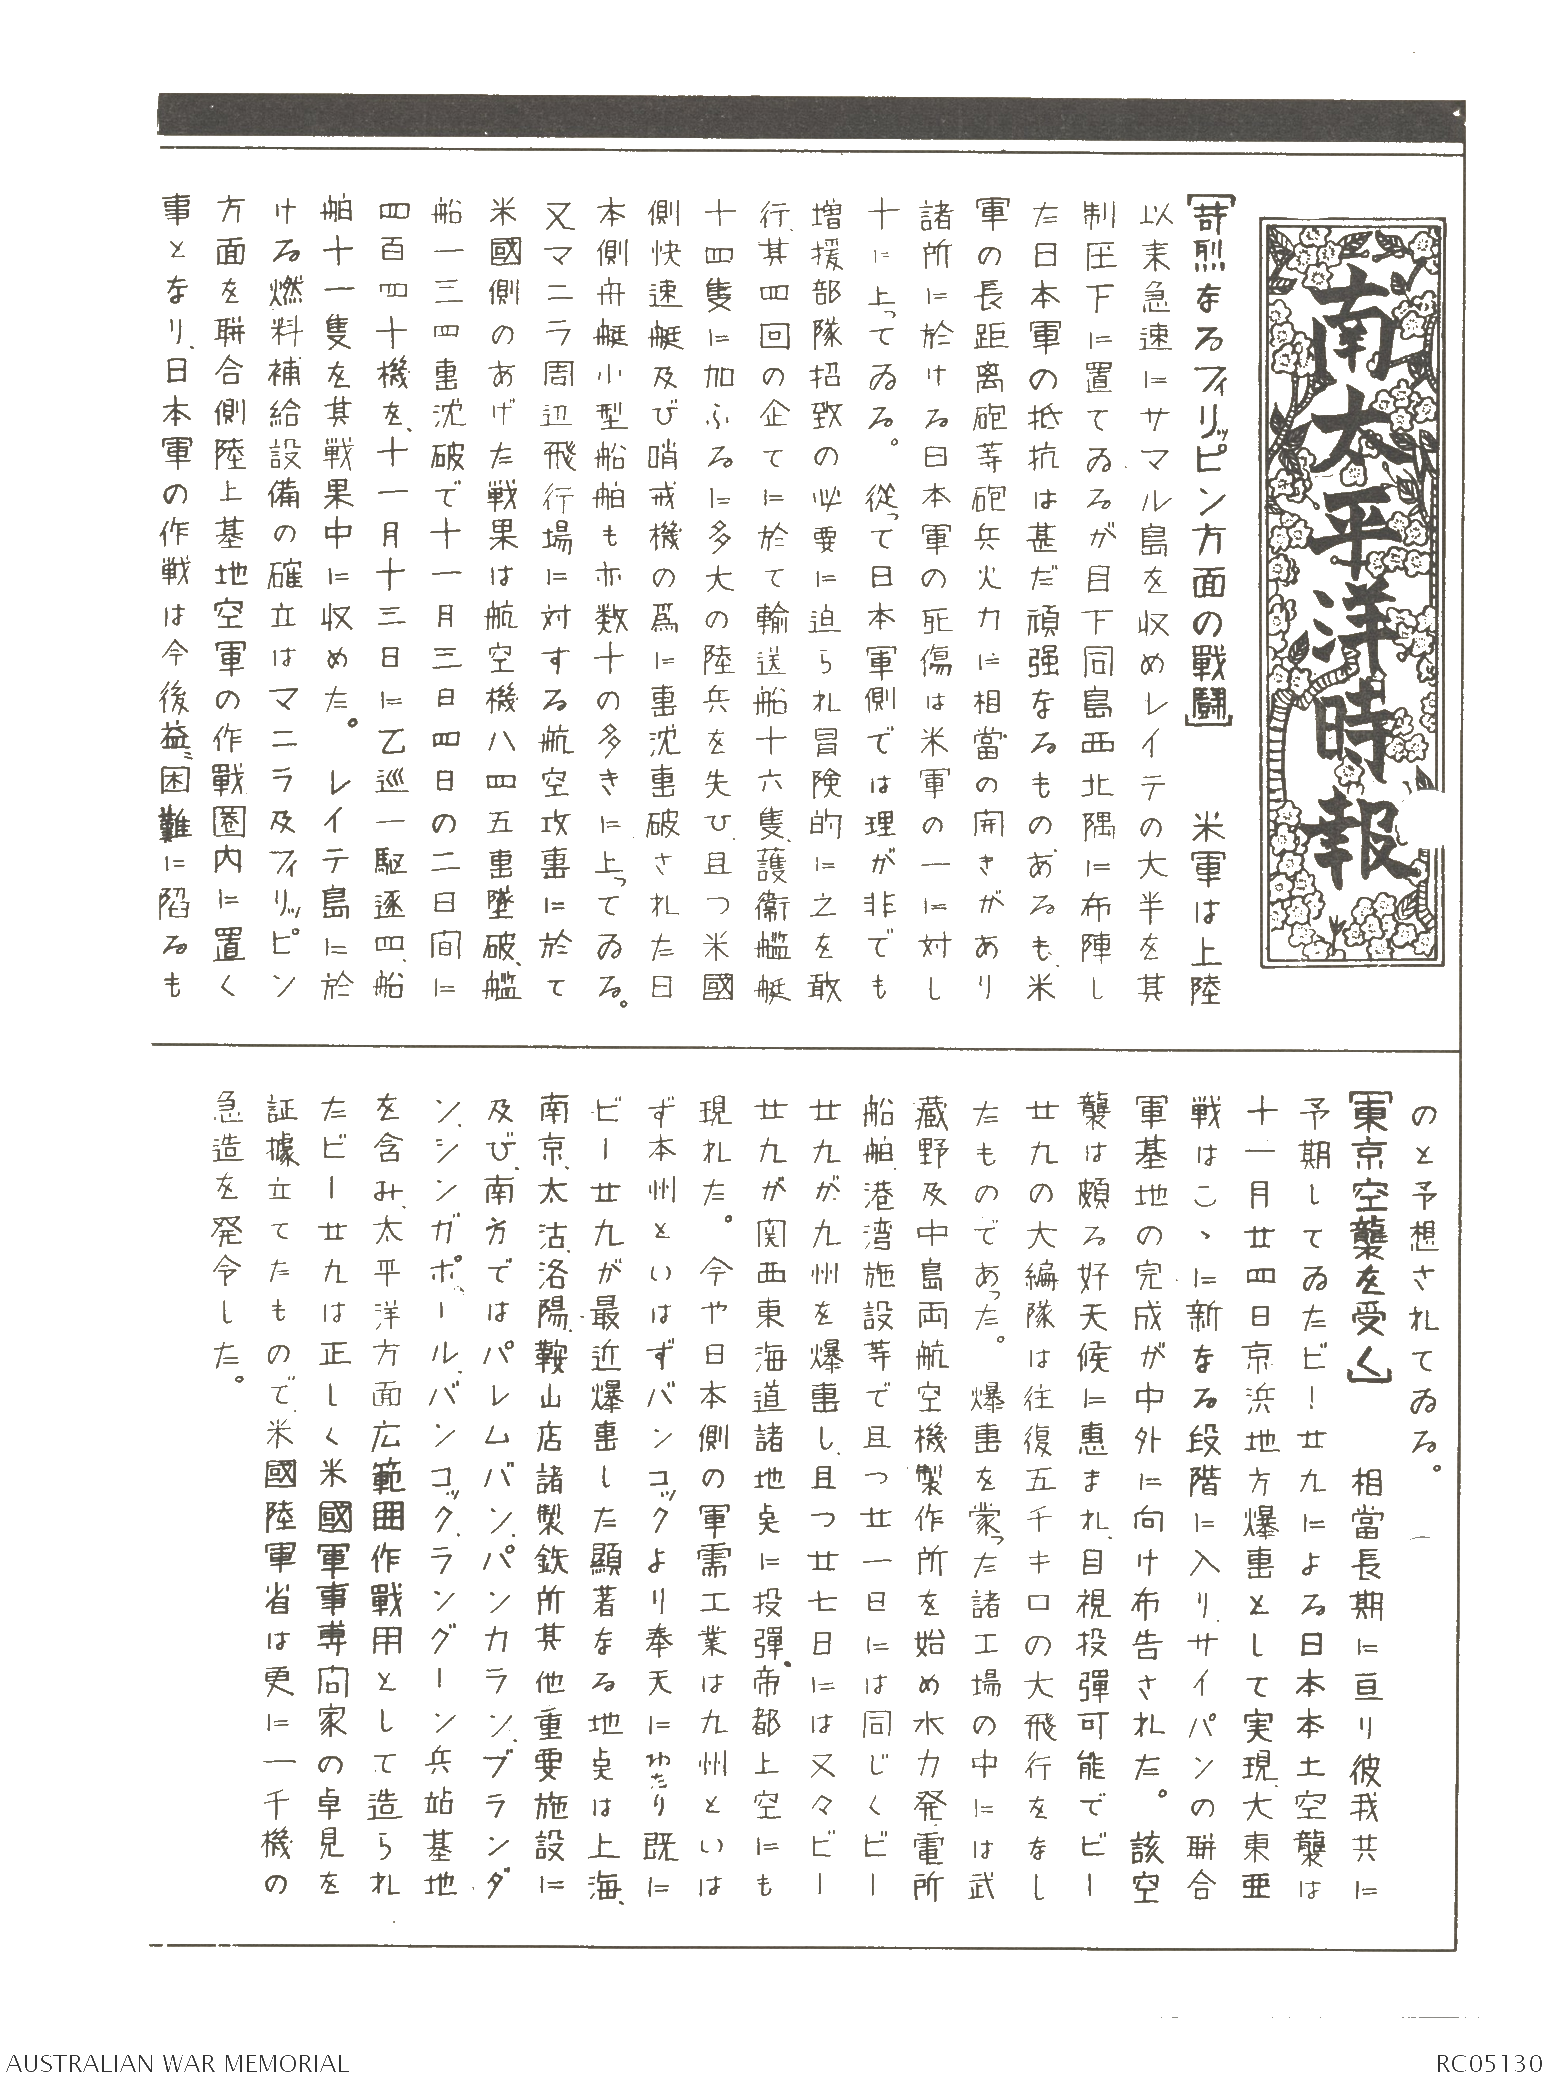 南太平洋時報
【苛烈なるフィリッピン方面の戦闘】 米軍は上陸
以来急速にサマル島を収めレイテの大半を其
制圧下に置てゐるが目下同島西北隅に布陣し
た日本軍の抵抗は甚だ頑強なるものあるも、米
軍の長距离砲等砲兵火力に相當の開きがあり
諸所に於ける日本軍の死傷は米軍の一に対し
十に上ってゐる。従って日本軍側では理が非でも
増援部隊招致の必要に迫られ冒険的に之を敢
行、其四回の企てに於て輸送船十六隻、護衛艦艇
十四隻に加ふるに多大の陸兵を失ひ、且つ米國
側快速艇及び哨戒機の爲に撃沈撃破された日
本側舟艇小型船舶も亦数十の多きに上ってゐる。
又マニラ周辺飛行場に対する航空攻撃に於て
米國側のあげた戦果は航空機八四五撃墜破、艦
船一三四撃沈破で十一月三日四日の二日間に
四百四十機を、十一月十三日に乙巡一駆逐四、船
舶十一隻を其戦果中に収めた。 レイテ島に於
ける燃料補給設備の確立はマニラ及フィリッピン
方面を聯合側陸上基地空軍の作戰圏内に置く
事となり、日本軍の作戦は今後益〻困難に陷るも
のと予想されてゐる。
【東京空襲を受く】 相當長期に亘り彼我共に
予期してゐたビー廿九による日本本土空襲は
十一月廿四日京浜地方爆撃として実現、大東亜
戦はこゝに新なる段階に入り、サイパンの聯合
軍基地の完成が中外に向け布告された。該空
襲は頗る好天候に惠まれ、目視投彈可能でビー
廿九の大編隊は往復五千キロの大飛行をなし
たものであった。 爆撃を蒙った諸工場の中には武
蔵野及中島両航空機製作所を始め水力発電所
船舶、港湾施設等で且つ廿一日には同じくビー
廿九が九州を爆撃し、且つ廿七日には又々ビー
廿九が関西東海道諸地奌に投彈、帝都上空にも
現れた。 今や日本側の軍需工業は九州といは
ず本州といはずバンコックより奉天にわたり既に
ビー廿九が最近爆撃した顯著なる地奌は上海、
南京、太沽、洛陽、鞍山店諸製鉄所其他重要施設に
及び、南方ではパレムバン、パンカラン、ブランダ
ン、シンガポール、バンコック、ラングーン兵站基地
を含み、太平洋方面広範囲作戰用として造られ
たビー廿九は正しく米國軍事専向家の卓見を
証據立てたもので、米國陸軍省は更に一千機の
急造を発令した。
AUSTRALIAN WAR MEMORIAL
RC05130